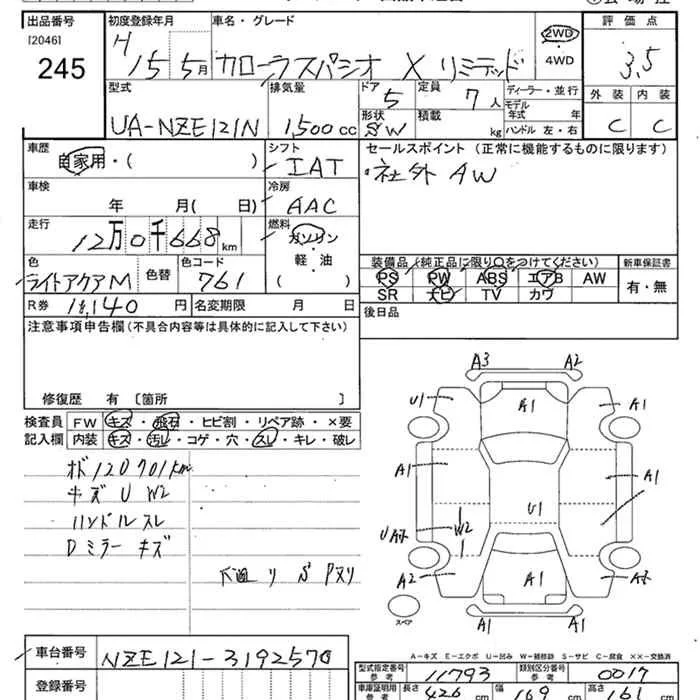 出品番号 初度登録年月 車名・グレード 2WD 評価点
[2046] H
245 15 5月 カローラスパシオ X リミテッド 4WD 3.5
型式 排気量 ドア 5 定員 7人 ディーラー・並行 外装 内装
UA-NZE121N 1,500cc 形状 SW 積載 kg モデル年式 年式 C C
ハンドル 左・右
車歴 シフト セールスポイント (正常に機能するものに限ります)
自家用・( ) IAT 社外 AW
車検 冷房
年 月( 日) AAC
走行 燃料
12万0千668km ガソリン
色 色替 色コード 軽・油 装備品(純正品に限り○をつけてください) 新車保証書
ライトアクアM 761 ( ) PS PW ABS エアB AW 有・無
R券 18,140円 名変期限 月 日 SR ナビ TV カワ
注意事項申告欄(不具合内容等は具体的に記入して下さい) 後日品
修復歴 有 〔箇所 〕
検査員 FW キズ・飛石・ヒビ割・リペア跡・×要
記入欄 内装 キズ・汚レ・コゲ・穴・スレ・キレ・破レ
オド120701km
キズ U W2
ハンドルスレ
Dミラー キズ
下廻リ S Pヌリ
A3 A2
U1 A1 A1
A1 A1
U1
W2
A2 A1
A1 A1
スペア
A-キズ E-エクボ U-凹み W-補修跡 S-サビ C-腐食 ××-交換済
車台番号 NZE121-3192570
型式指定番号 参考 11793 類別区分番号 参考 0017
登録番号
車庫証明用 参考 長さ 426cm 幅 169cm 高さ 161cm